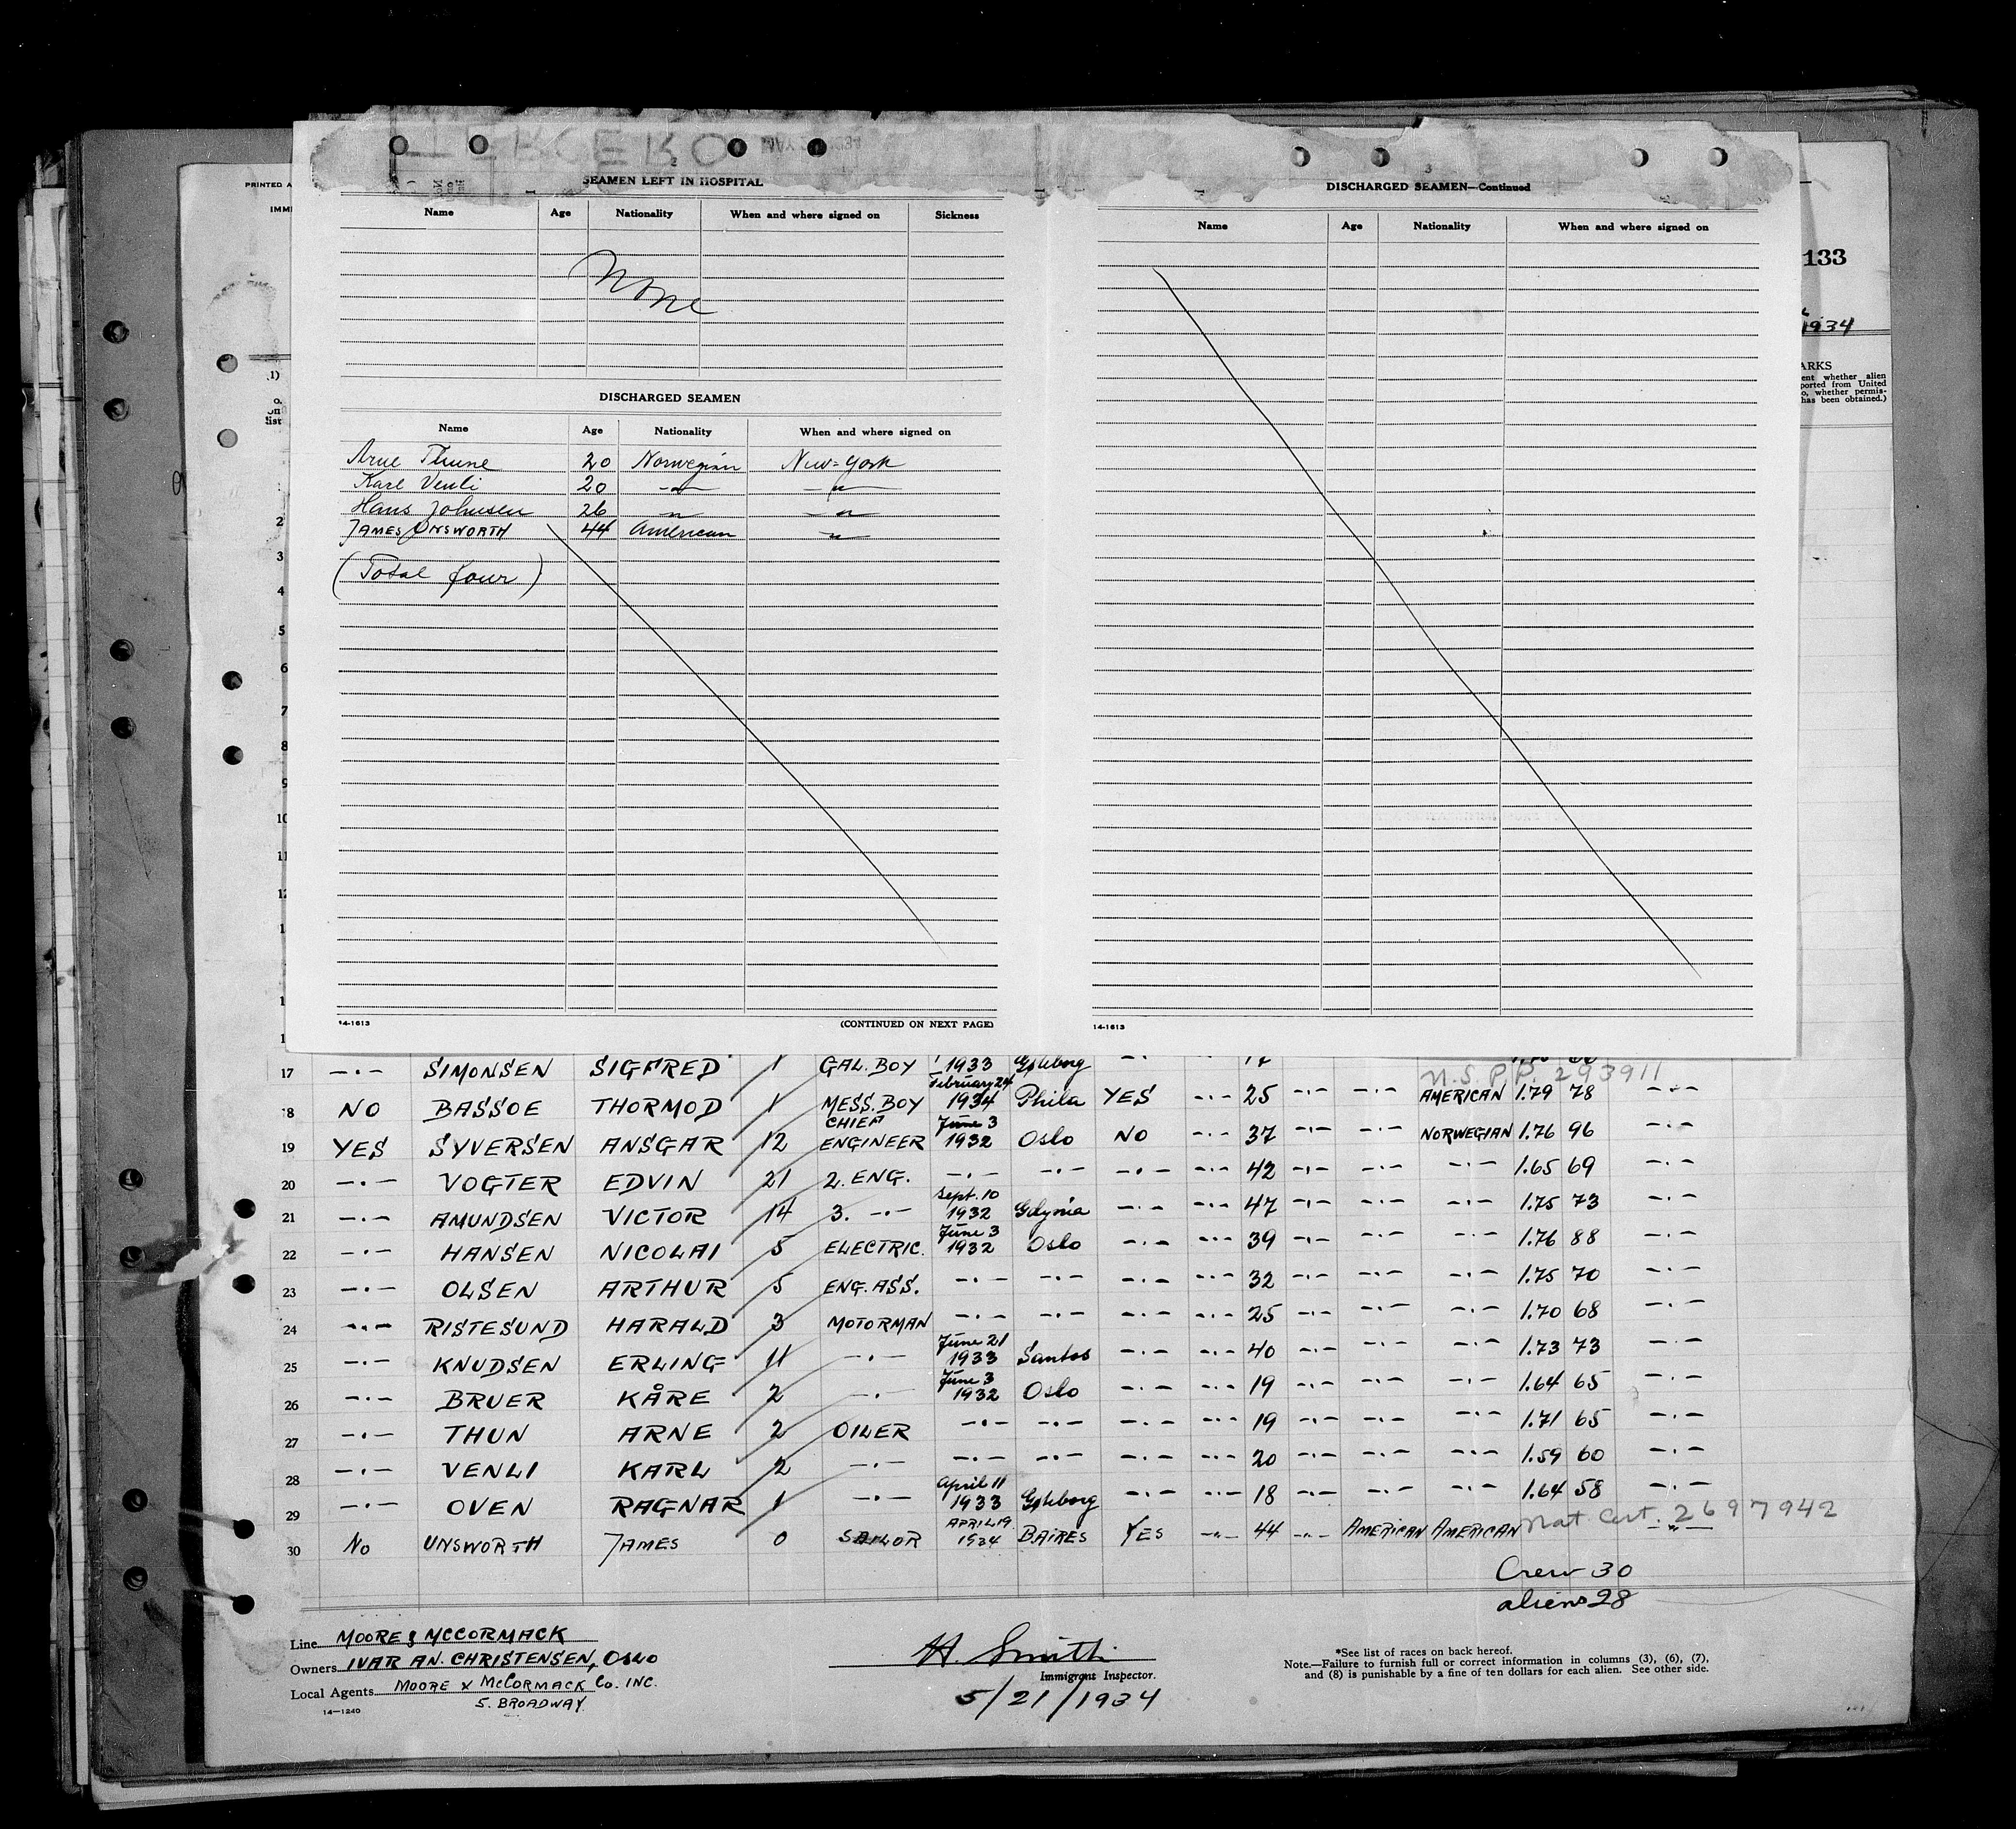 TERCERO
2
SEAMEN LEFT IN HOSPITAL
Name Age Nationality When and where signed on Sickness
None
DISCHARGED SEAMEN
Name Age Nationality When and where signed on
Arne Thune 20 Norwegian New-York
Karl Venli 20 -"- -"-
Hans Johnsen 26 -"- -"-
JAMES UNSWORTH 44 American -"-
(Total four)
14-1613 (CONTINUED ON NEXT PAGE)
3
DISCHARGED SEAMEN—Continued
Name Age Nationality When and where signed on
14-1613
PRINTED A
IMMI
133
1934
(1)
list
ARKS
ent whether alien
ported from United
o, whether permis-
has been obtained.)
2
3
4
5
6
7
8
9
10
11
12
17 -·- SIMONSEN SIGFRED 1 GAL. BOY 1933 Gøteborg -·- -·- 17
U.S. P.P. 293911
18 NO BASSOE THORMOD 1 MESS. BOY February 24 1934 Phila YES -·- 25 -·- -·- AMERICAN 1.79 78 -·-
19 YES SYVERSEN ANSGAR 12 CHIEF ENGINEER June 3 1932 Oslo NO -·- 37 -·- -·- NORWEGIAN 1.76 96 -·-
20 -·- VOGTER EDVIN 21 2. ENG. -·- -·- -·- -·- 42 -·- -·- -·- 1.65 69 -·-
21 -·- AMUNDSEN VICTOR 14 3. -·- Sept. 10 1932 Gdynia -·- -·- 47 -·- -·- -·- 1.75 73 -·-
22 -·- HANSEN NICOLAI 5 ELECTRIC. June 3 1932 Oslo -·- -·- 39 -·- -·- -·- 1.76 88 -·-
23 -·- OLSEN ARTHUR 5 ENG. ASS. -·- -·- -·- -·- 32 -·- -·- -·- 1.75 70 -·-
24 -·- RISTESUND HARALD 3 MOTORMAN -·- -·- -·- -·- 25 -·- -·- -·- 1.70 68 -·-
25 -·- KNUDSEN ERLING 11 -·- June 21 1933 Santos -·- -·- 40 -·- -·- -·- 1.73 73 -·-
26 -·- BRUER KÅRE 2 -·- June 3 1932 Oslo -·- -·- 19 -·- -·- -·- 1.64 65 -·-
27 -·- THUN ARNE 2 OILER -·- -·- -·- -·- 19 -·- -·- -·- 1.71 65 -·-
28 -·- VENLI KARL 2 -·- -·- -·- -·- -·- 20 -·- -·- -·- 1.59 60 -·-
29 -·- OVEN RAGNAR 1 -·- April 11 1933 Gøteborg -·- -·- 18 -·- -·- -·- 1.64 58 -·-
30 No UNSWORTH JAMES 0 SAILOR APRIL 19 1934 BAIRES YES -"- 44 -"- AMERICAN AMERICAN Nat. Cert. 2697942 -"-
Crew 30
aliens 28
Line MOORE & MCCORMACK
Owners IVAR AN. CHRISTENSEN, OSLO
Local Agents MOORE & McCORMACK Co. INC.
5. BROADWAY
14—1240
H. Smith
Immigrant Inspector.
5/21/1934
*See list of races on back hereof.
Note.—Failure to furnish full or correct information in columns (3), (6), (7),
and (8) is punishable by a fine of ten dollars for each alien. See other side.